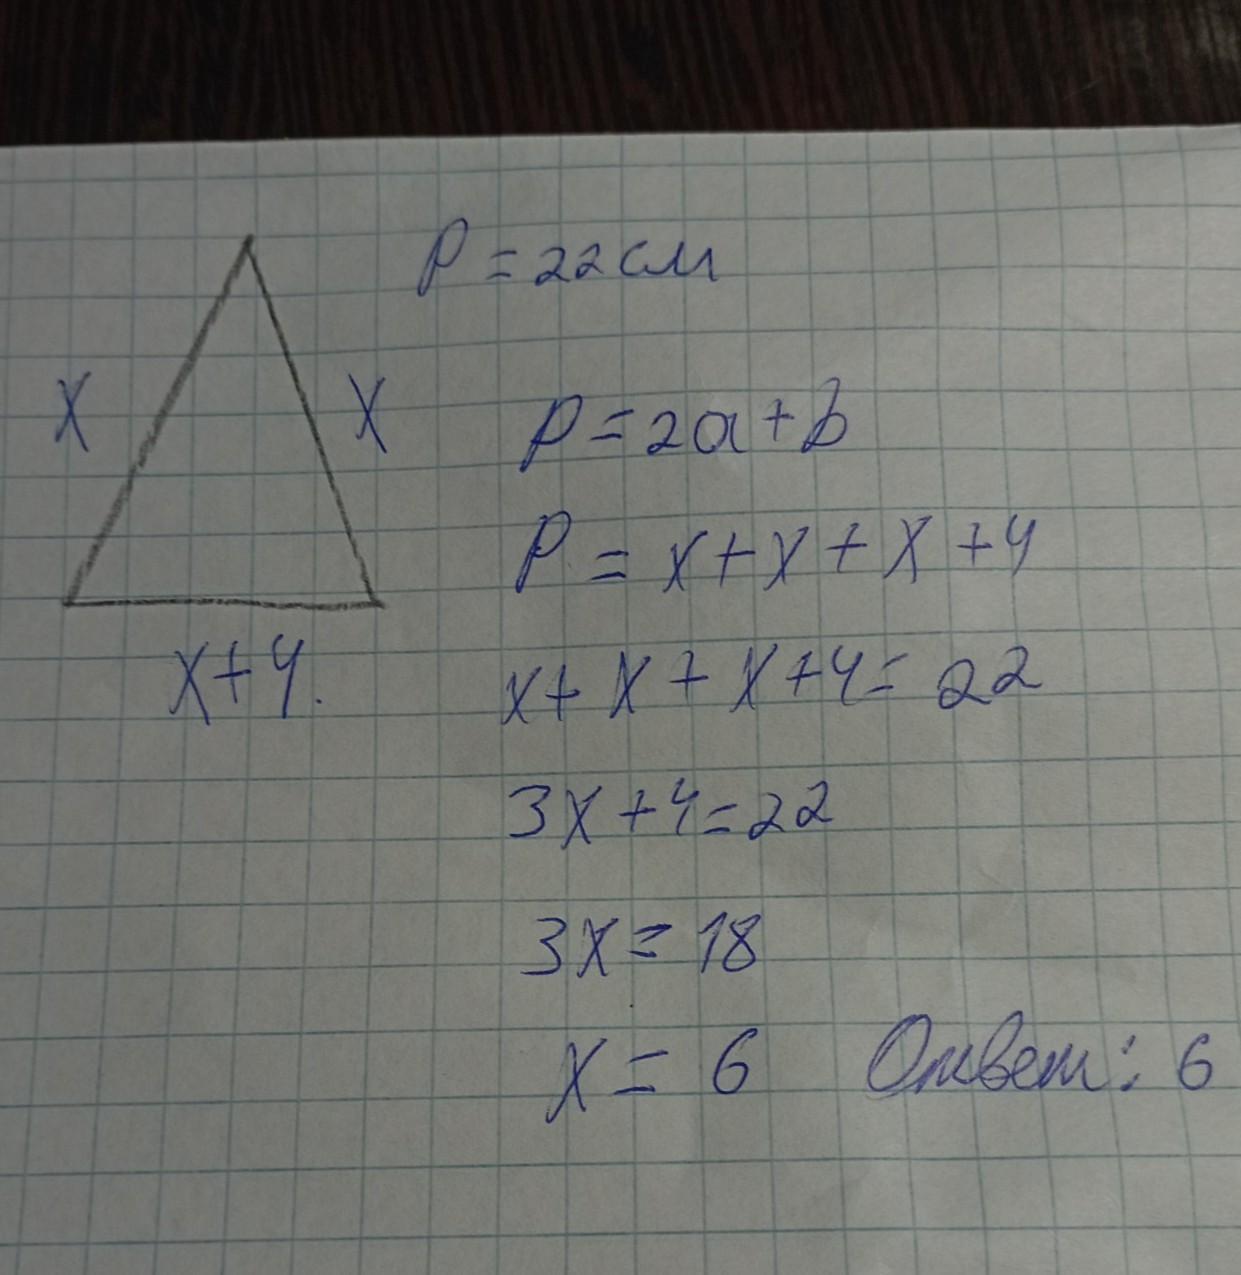 P = 22 см
X
X
X+4.
P = 2a + b
P = x + x + x + 4
x + x + x + 4 = 22
3x + 4 = 22
3x = 18
x = 6
Ответ: 6